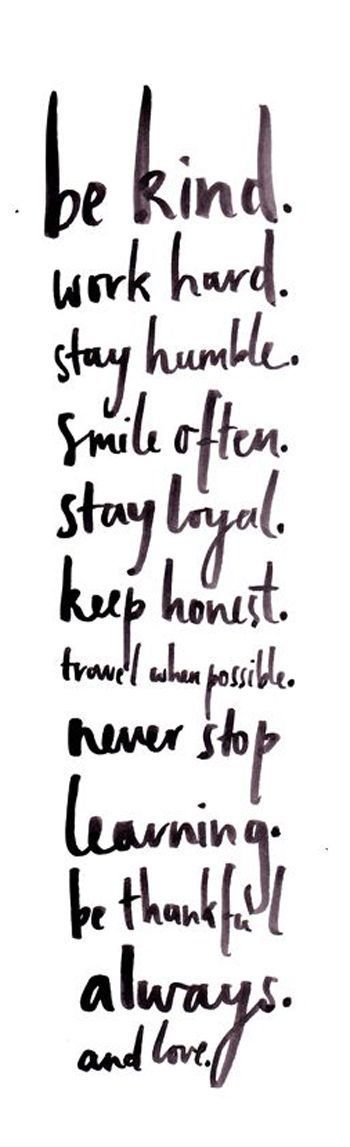 be kind.
work hard.
stay humble.
smile often.
stay loyal.
keep honest.
travel when possible.
never stop
learning.
be thankful
always.
and love.